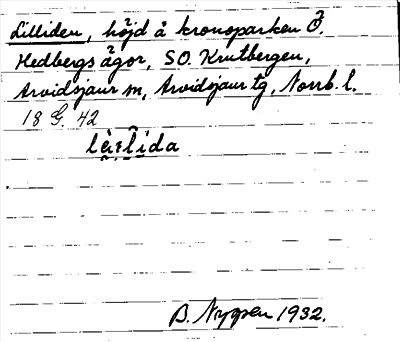 Lilliden, höjd å kronoparken Ö.
Hedbergs ägor, SO. Krutbergen,
Arvidsjaur sn, Arvidsjaur tg, Norrb. l.
18 G. 42
B. Nygren 1932.